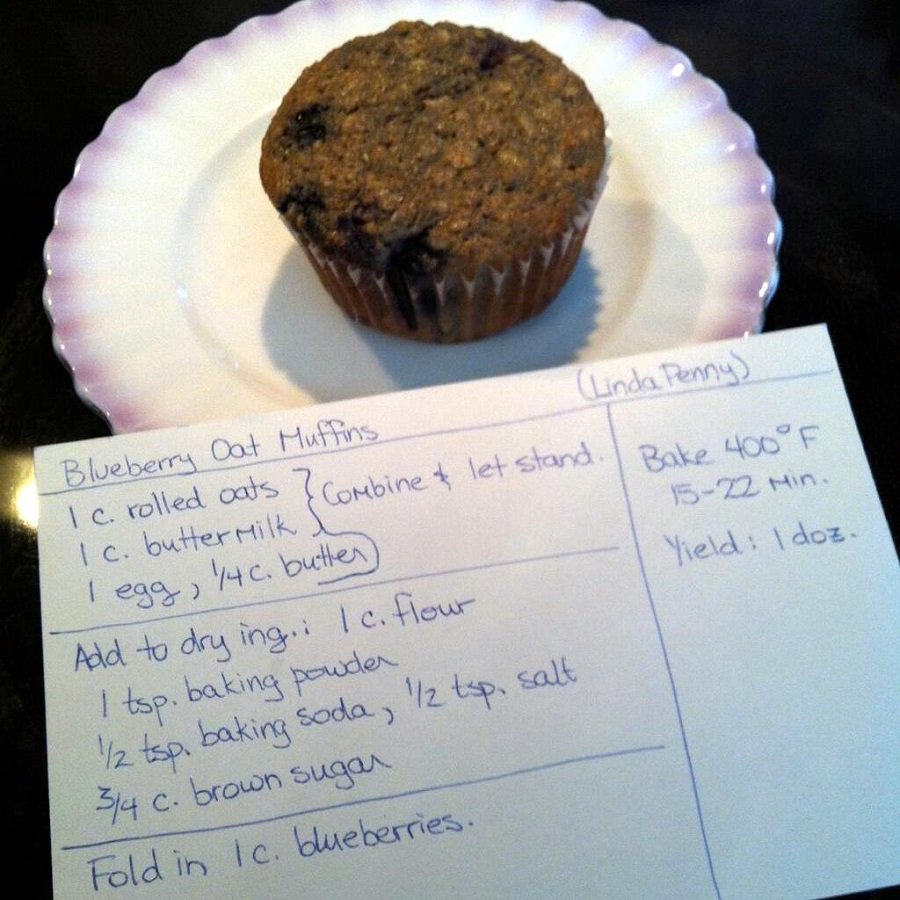 Blueberry Oat Muffins (Linda Penny)
1 c. rolled oats } Combine & let stand.
1 c. buttermilk
1 egg, 1/4 c. butter
Add to dry ing.: 1 c. flour
1 tsp. baking powder
1/2 tsp. baking soda, 1/2 tsp. salt
3/4 c. brown sugar
Fold in 1 c. blueberries.
Bake 400° F
15-22 Min.
Yield: 1 doz.